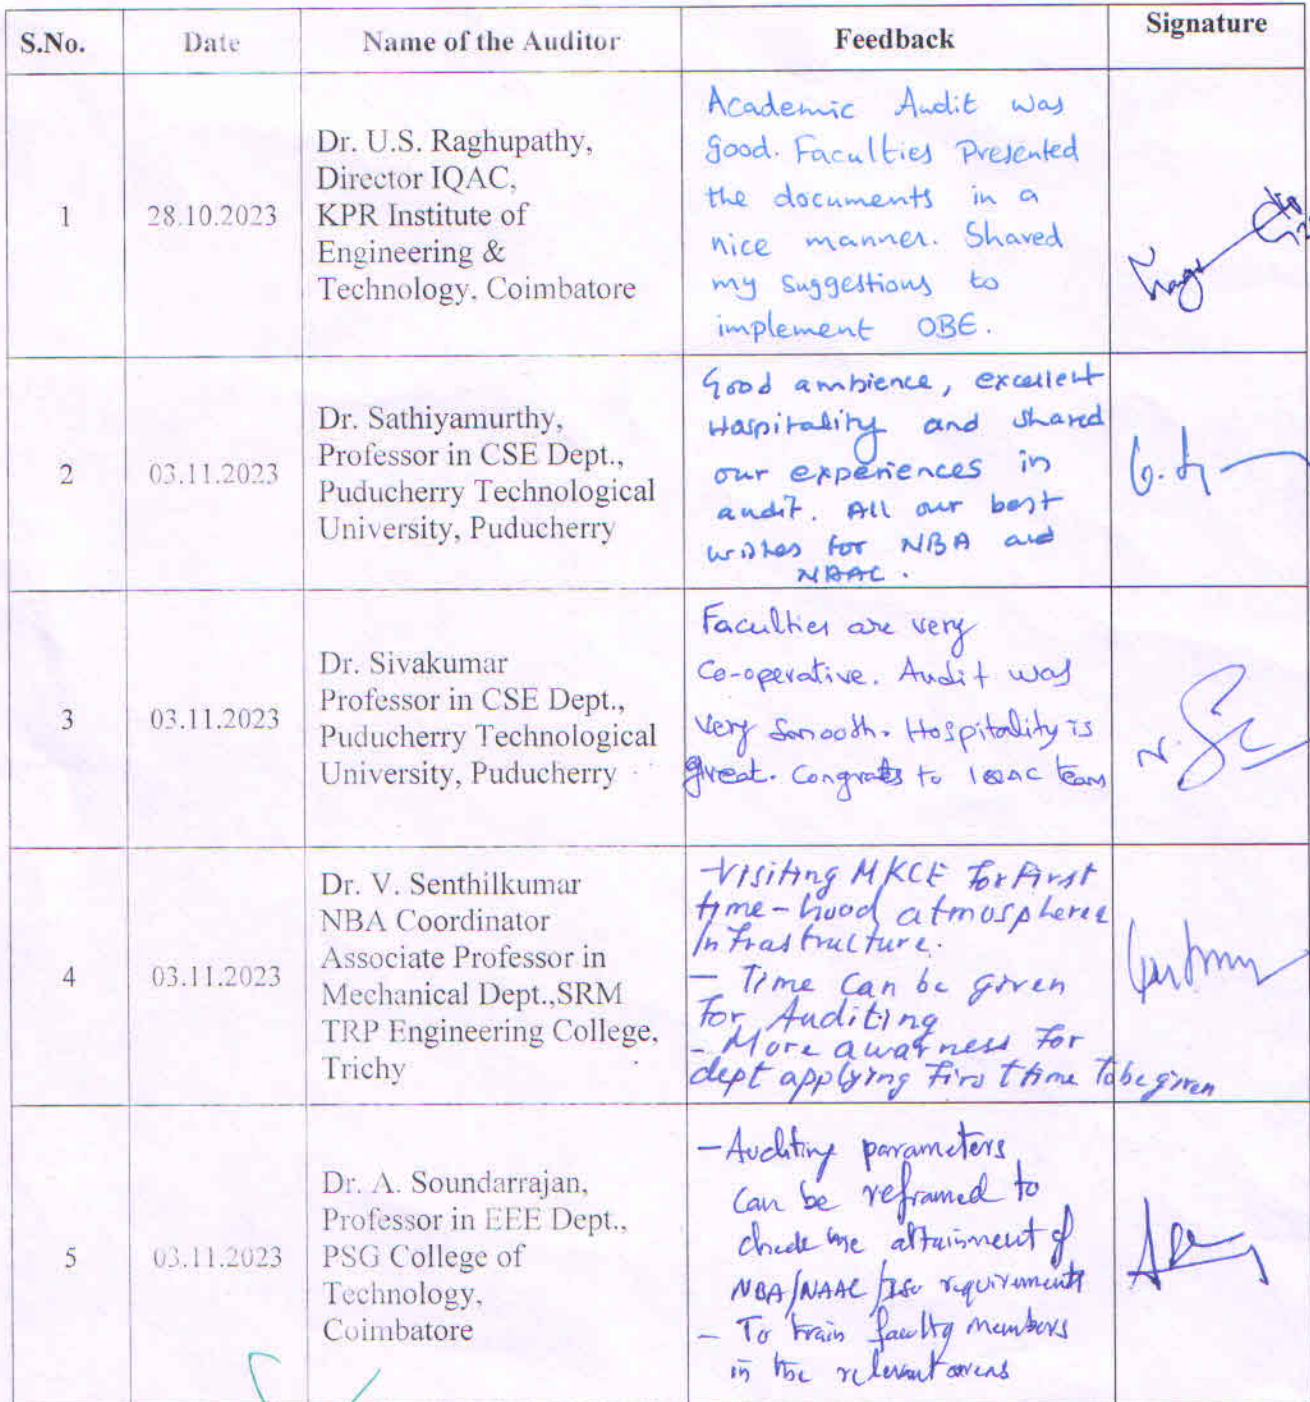 S.No. Date Name of the Auditor Feedback Signature
1
28.10.2023
Dr. U.S. Raghupathy,
Director IQAC,
KPR Institute of
Engineering &
Technology, Coimbatore
Academic Audit was
good. Faculties Presented
the documents in a
nice manner. Shared
my suggestions to
implement OBE.
2
03.11.2023
Dr. Sathiyamurthy,
Professor in CSE Dept.,
Puducherry Technological
University, Puducherry
Good ambience, excellent
Hospitality and shared
our experiences in
audit. All our best
wishes for NBA and
NAAC.
3
03.11.2023
Dr. Sivakumar
Professor in CSE Dept.,
Puducherry Technological
University, Puducherry
Faculties are very
Co-operative. Audit was
very smooth. Hospitality is
great. Congrats to IQAC team
4
03.11.2023
Dr. V. Senthilkumar
NBA Coordinator
Associate Professor in
Mechanical Dept.,SRM
TRP Engineering College,
Trichy
- Visiting MKCE for first
time - Good atmosphere
Infrastructure.
- Time can be given
for Auditing
- More awarness for
dept applying first time to be given
5
03.11.2023
Dr. A. Soundarrajan,
Professor in EEE Dept.,
PSG College of
Technology,
Coimbatore
- Auditing parameters
can be reframed to
check the attainment of
NBA/NAAC/ISO requirements
- To train faculty members
in the relevant areas